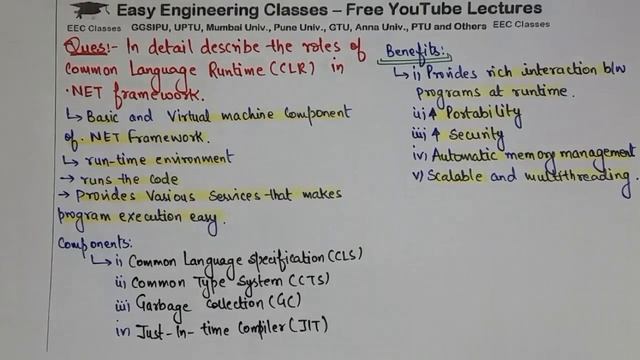 Easy Engineering Classes – Free YouTube Lectures
EEC Classes GGSIPU, UPTU, Mumbai Univ., Pune Univ., GTU, Anna Univ., PTU and Others EEC Classes
Ques:- In detail describe the roles of
Common Language Runtime (CLR) in
.NET framework.
↳ Basic and Virtual machine Component
of .NET Framework.
↳ run-time environment
→ runs the code
→ Provides Various Services that makes
program execution easy.
Components:
↳ i) Common Language Specification (CLS)
ii) Common Type System (CTS)
iii) Garbage Collection (GC)
iv) Just-In-time Compiler (JIT)
Benefits:
↳ i) Provides rich interaction b/w
programs at runtime.
ii) ↑ Portability
iii) ↑ Security
iv) Automatic memory management
v) Scalable and multithreading.